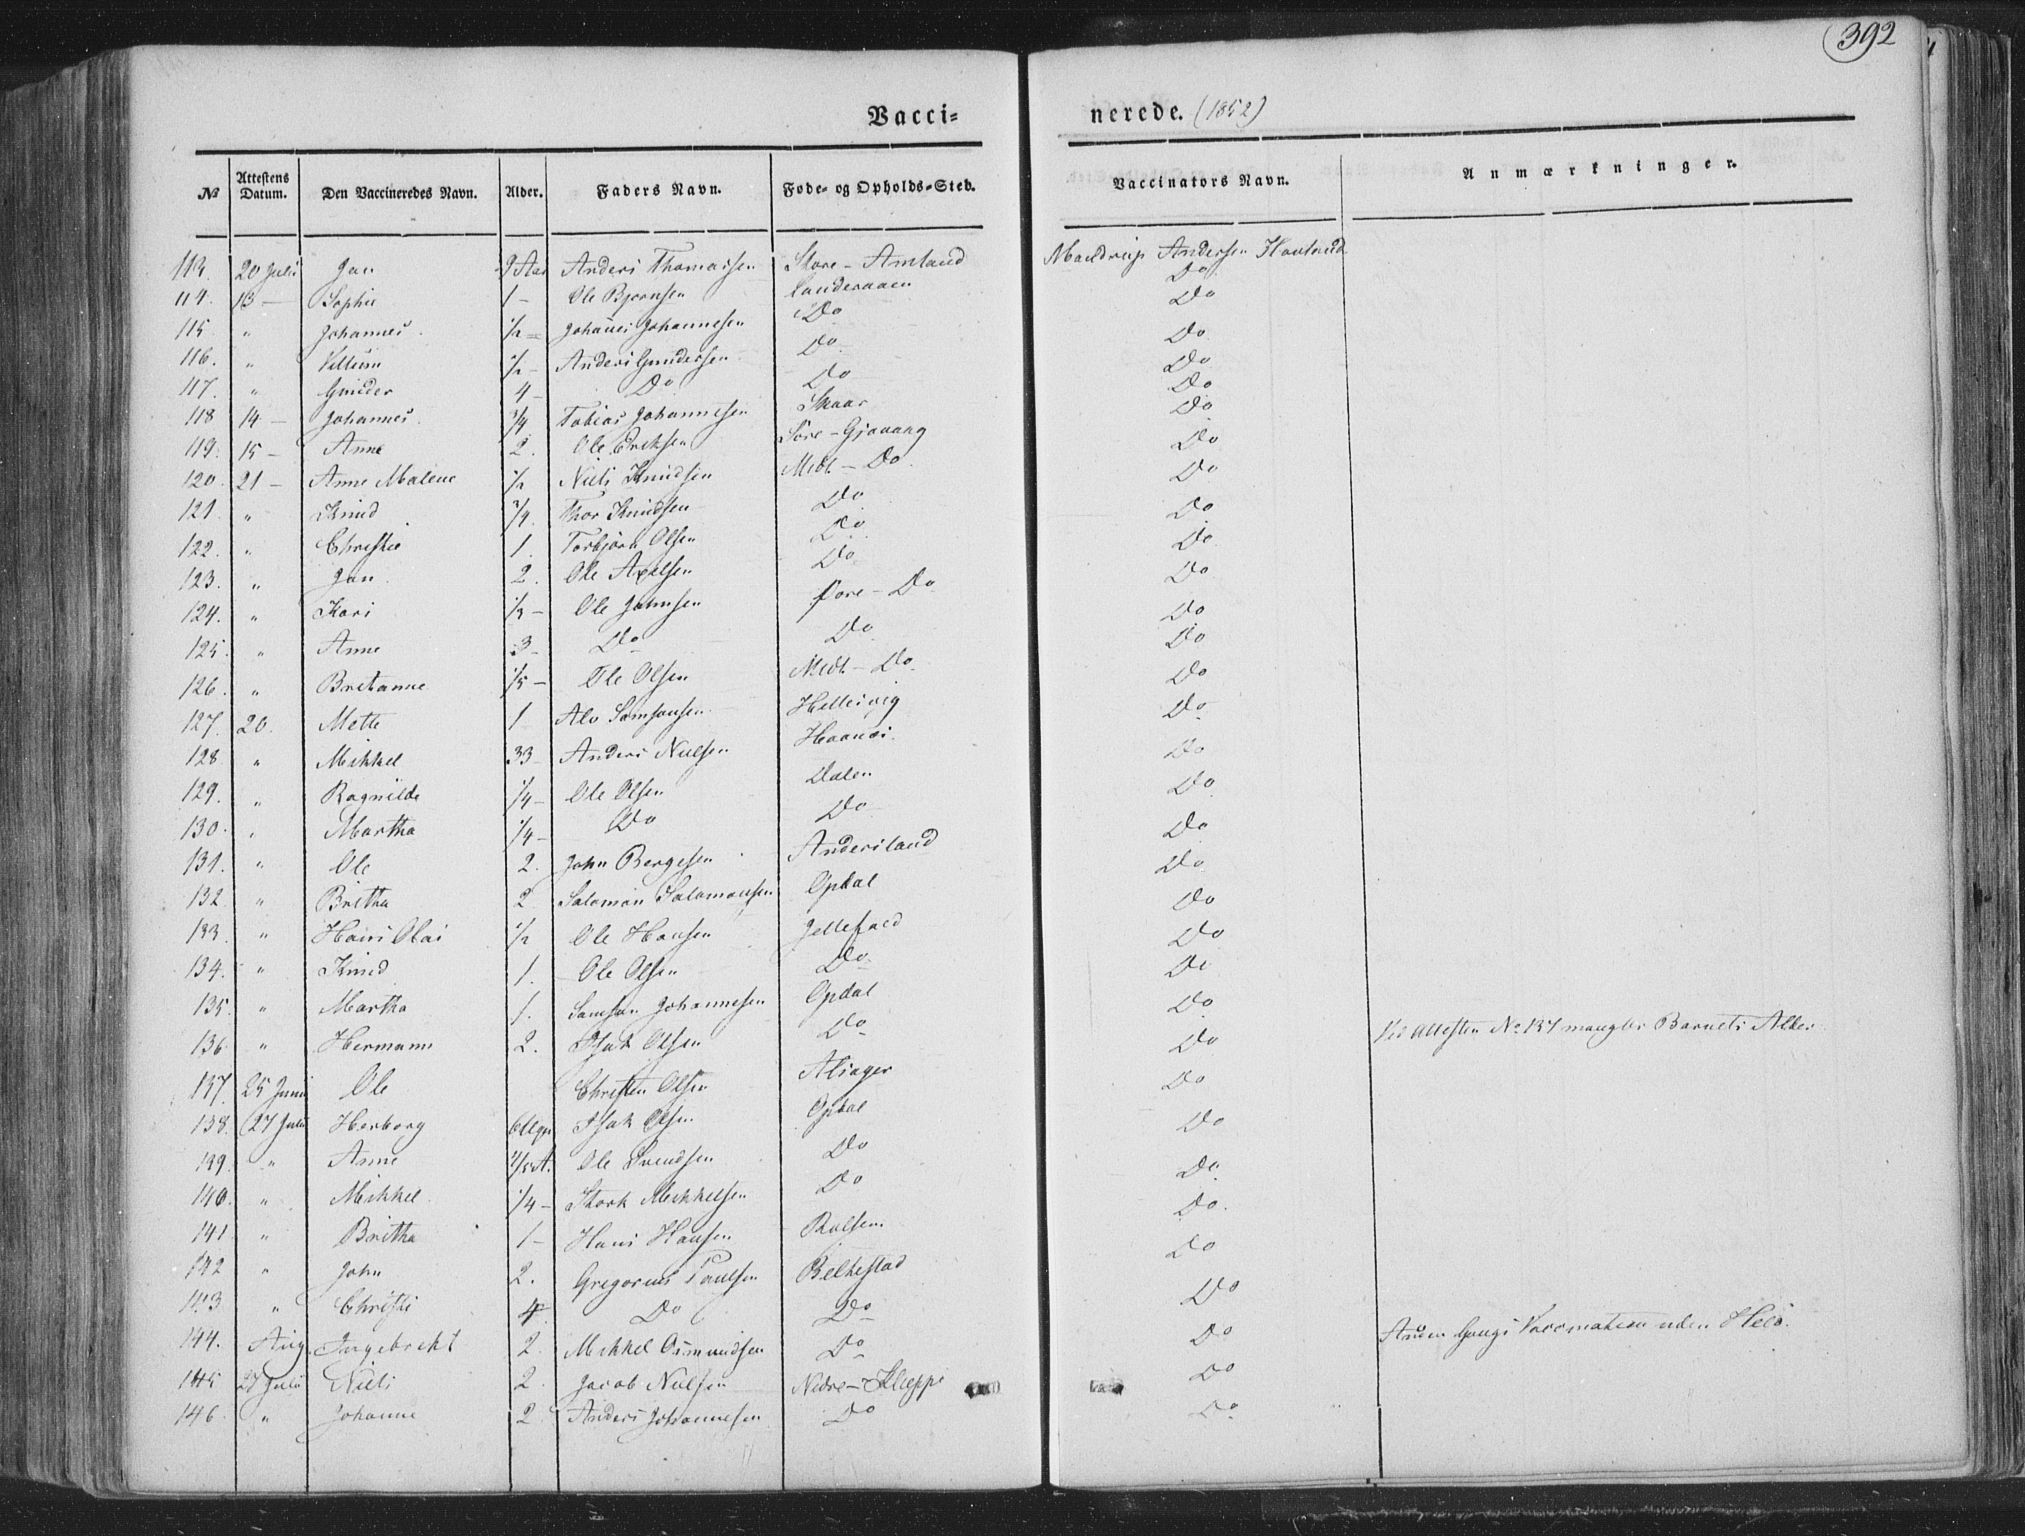 392
Vacci= nerede. (1852)
No Attestens Datum. Den Vaccineredes Navn. Alder. Faders Navn. Føde- og Opholds-Sted. Vaccinators Navn. Anmærkninger.
113. 20 Juli Jan Anders Thomassen Store - Amland Andersen
114. 13 — Sophie 1 - Ole Bjørnsen Landeraaen Do
115. " Johannes. 1/2 - Johannes Johannesen Do Do
116. " Villum 1/2 - Anders Gundersen Do Do
117. " Gunder 4 - Do Do Do
118 14 — Johannes. 3/4 Tobias Johannesen Skaar Do
119. 15 — Anne 2. Ole Eriksen Søre - Gjøvaag Do
120. 21 — Anne Malene 1/2 Niels Knudsen Midt - Do Do
121. " Knud 3/4. Thor Knudsen Do Do
122. " Christie 1. Torbjørn Olsen Do Do
123. " Jan 2. Ole Axelsen Do Do
124. " Kari 1/3 - Ole Johnsen Søre - Do Do
125. " Anne 3 - Do Do Do
126. " Britanne 1/5 - Ole Olsen Midt - Do Do
127. 20. Mette 1 Alv Samsonsen Hellevig Do
128 " Mikkel 33 - Anders Nielsen Haanes. Do
129. " Ragnilde 1/4 - Ole Olsen Dalen Do
130. " Martha 1/4 - Do Do Do
131. " Ole 2. John Børgesen Andersland Do
132 " Britha 2 Salomon Salomonsen Opdal Do
133. " Hans Olai 1/2 Ole Hansen Do
134. " Knud 1. Ole Olsen Do Do
135. " Martha 1. Samson Johannesen Opdal Do
136. " Hermann 2. Isak Olsen Do Do Ved Attesten No 137 mangler Barnets Alder
137. 25 Juni Ole Christen Olsen Alsager Do
138. 27 Juli Herborg Isak Olsen Opdal Do
139. " Anne Ole Svendsen Do Do
140. " Mikkel 1/4 - Stork Mikkelsen Do Do
141 " Britha 1 - Hans Hansen Rolsen Do
142 " John 2. Gregorius Paulsen Belkestad Do
143. " Christi 4 Do Do Do
144. Aug. Ingebrikt 2. Mikkel Osmundsen Do Do Anden Gangs Vaccination uden Held.
145 27 Juli Niels 2. Jacob Nielsen Nedre - Kleppe Do
146. " Johanne 2 Anders Johannesen Do Do